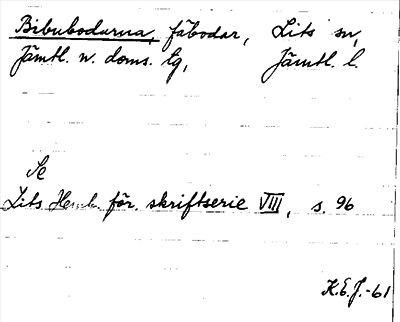 Bibubodarna, fäbodar, Lits sn,
Jämtl. n. doms. tg, Jämtl. l.
Se
Lits Hemb. för. skriftserie VIII, s. 96
K.E.J.-61